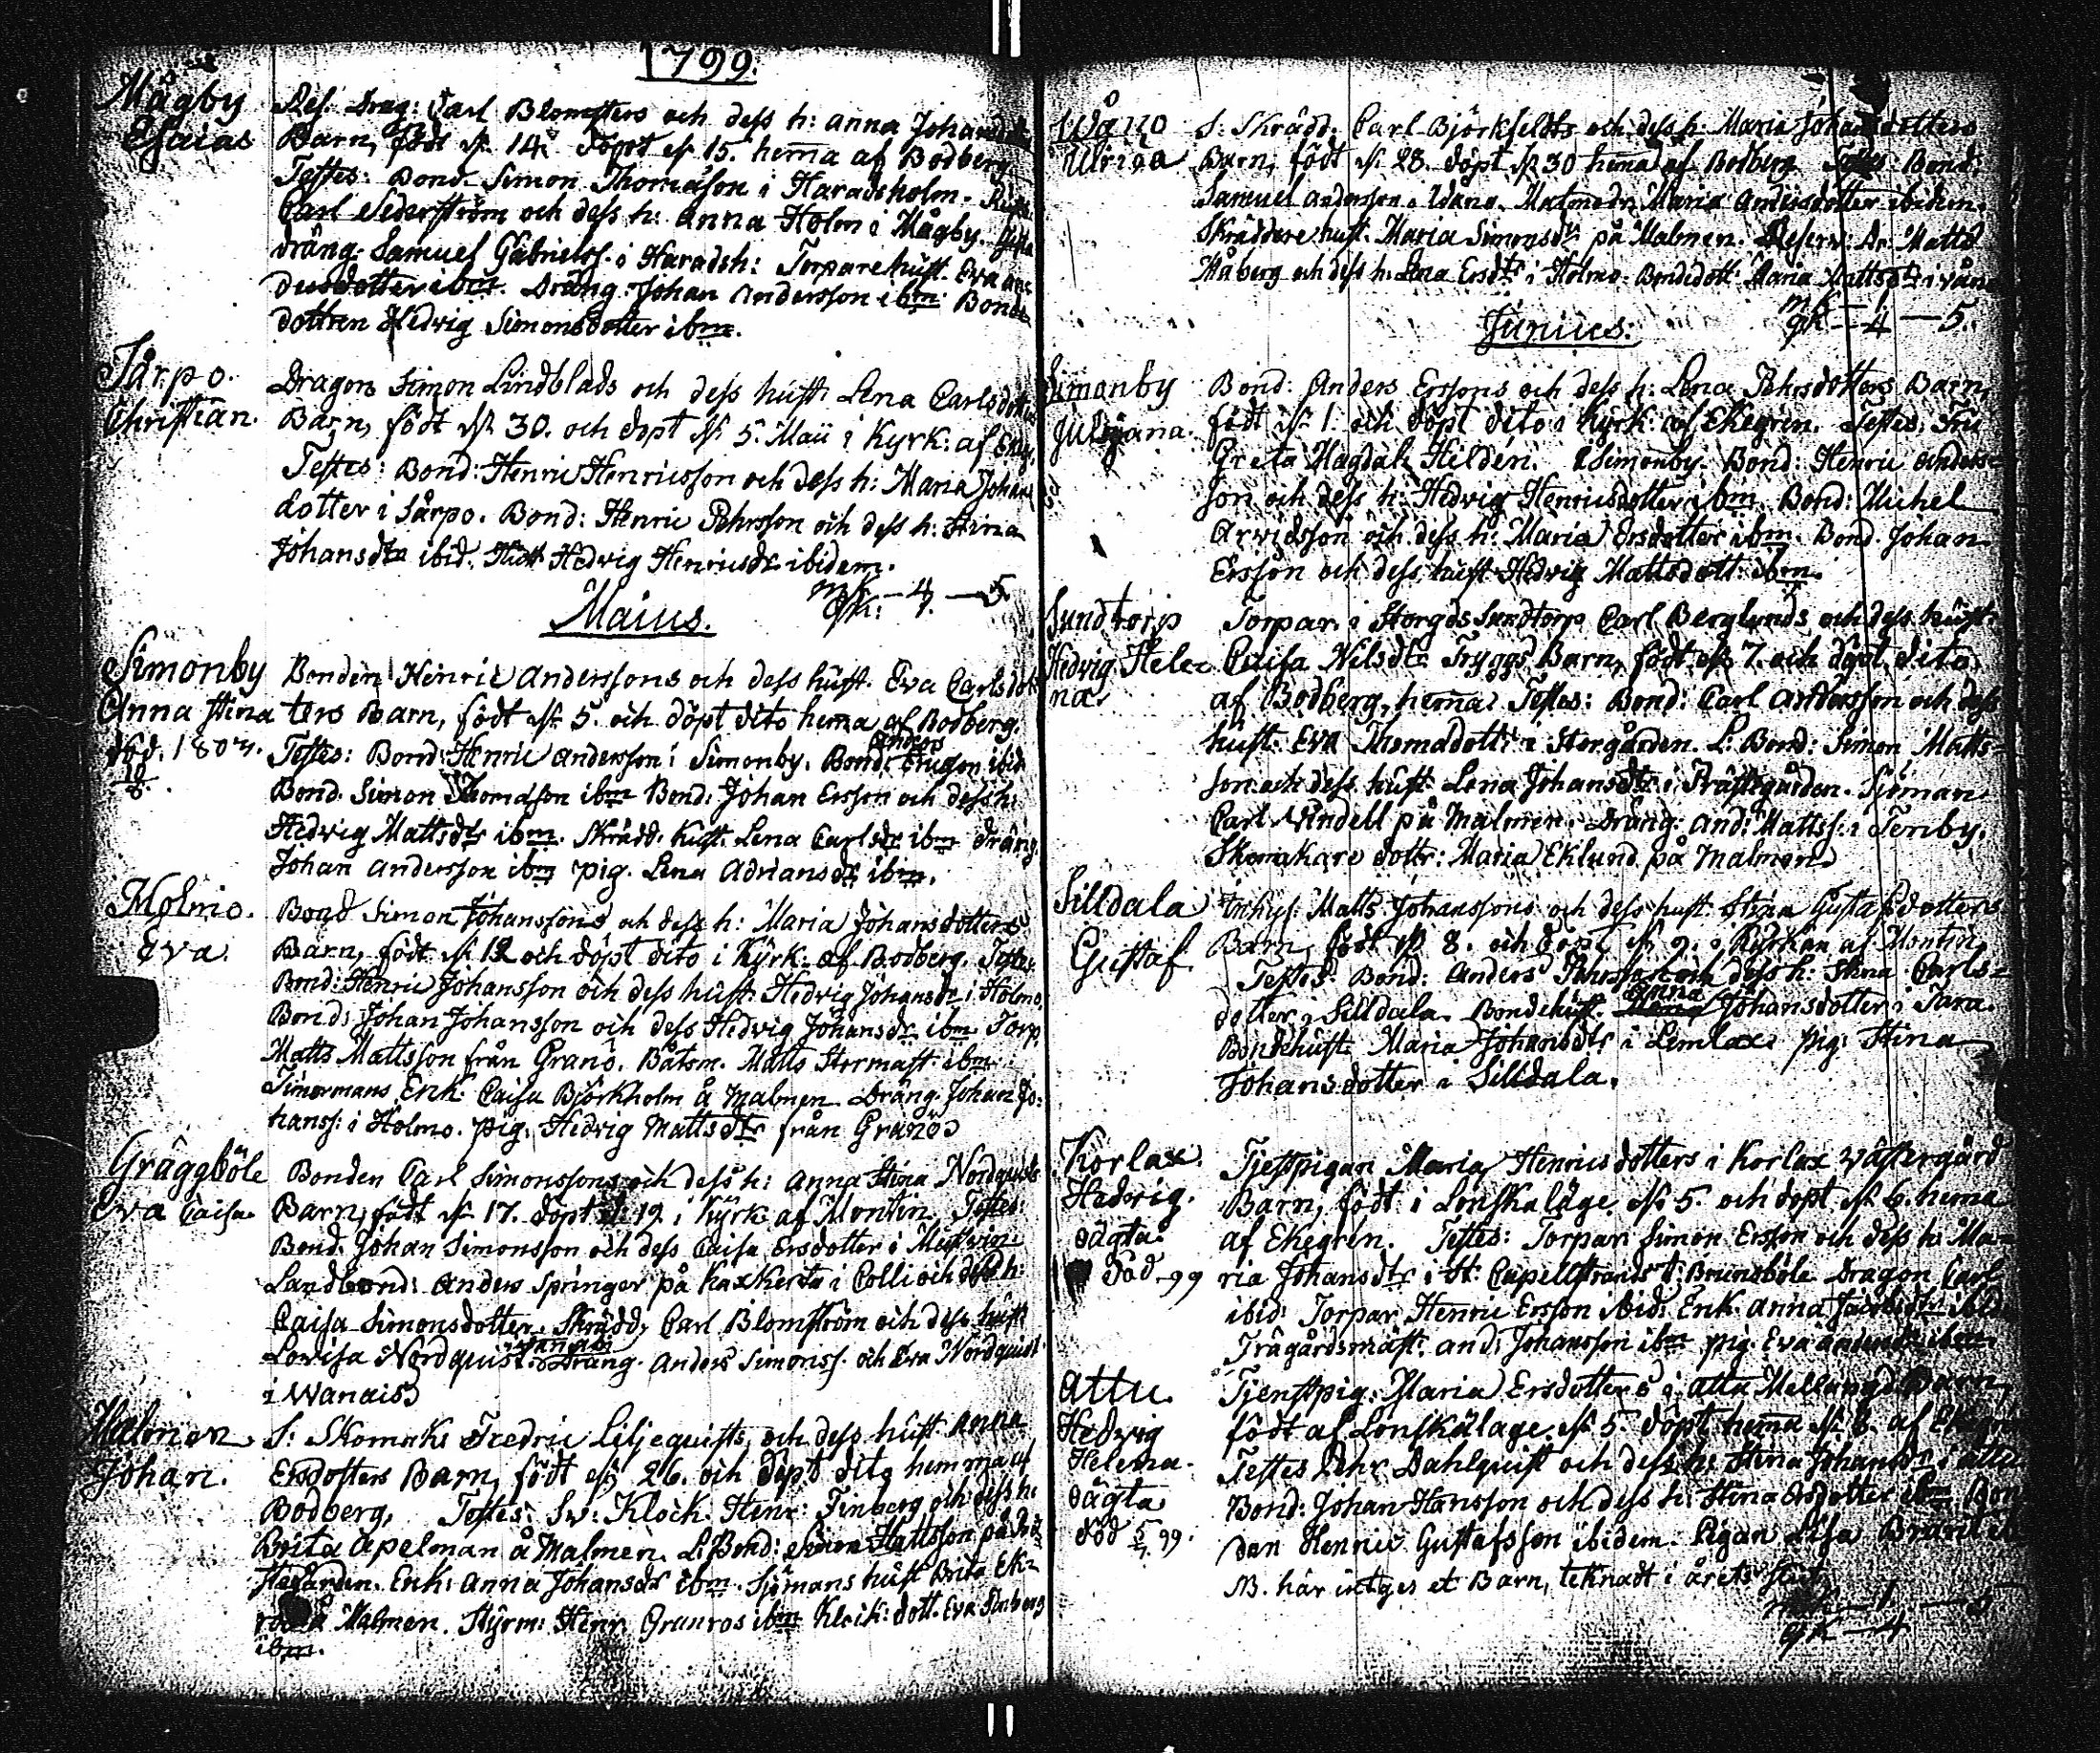 1799.
Mågby Res. Drag: Carl Blomsters och dess h: Anna Johans
Esaias Barn, född d. 14. döpt d. 15. hema af Bodberg
Testes: Bond Simon Thomasson i Haradsholm.
Carl Sederström och dess h: Anna Holm i Mågby.
dräng: Samuel Gabrielss. i Haradsh: Torparehust. Eva An
dersdotter ibm. Dräng. Johan Andersson ibm. Bonde
dottren Hedvig Simonsdotter ibm.
Sårpo. Dragon Simon Lindblads och dess hust. Lena Carlsdotters
Christian. Barn, född d. 30. och döpt d. 5. Maii i Kyrk: af Ekeg.
Testes: Bond: Henric Henricsson och dess h: Maria Johans
dotter i Sårpo. Bond: Henric Pehrsson och dess h: Stina
Johansdtr ibid. Hedvig Henricsdr ibidem.
mk. — 4
qk: 1. — 5
Maius.
Simonby Bonden Henric Anderssons och dess hust. Eva Carlsdot
Anna Stina ters Barn, född d. 5. och döpt dito hema af Bodberg.
död. 1807. Testes: Bond: Henric Andersson i Simonby. Bond: Anders Ericson ibid
Bond. Simon Thomasson ibm Bond: Johan Ersson och dess h:
Hedvig Mattsdtr ibm. Skrädd. hust. Lena Carlsdr ibm dräng.
Johan Andersson ibm pig. Lena Adriansdr ibm.
Holmo. Bond Simon Johanssons och dess h: Maria Johansdotters
Eva. Barn, född d. 12 och döpt dito i Kyrk. af Bodberg. Testes
Bond: Henric Johansson och dess hust. Hedvig Johansdr i Holmo,
Bond: Johan Johansson och dess Hedvig Johansdr ibm Torp.
Matts Mattsson från Granö. Båtsm. Matts Stormast ibm
Timermans Enk: Caisa Björkholm å Malmen Dräng. Johan Jo:
hanss: i Holmo. pig. Hedvig Mattsdtr från Granö
Gräggböle Bonden Carl Simonssons och dess h: Anna Stina Nordquists
Eva Caisa Barn, född d. 17. döpt d. 19. i Kyrk af Montin. Testes:
Bond. Johan Simonsson och dess Caisa Ersdotter i
Landbond: Anders Springer på Kaxkerta i Colli och dess h:
Caisa Simonsdotter. Skrädd. Carl Blomström och dess hust
Lovisa Nordquist. Dräng. Anders Simonss. och Eva Nordquist
i Wanais
Malmen S: Skomak: Fredric Liljequists och dess hust. Anna
Johan. Ersdotters Barn, född d. 26. och döpt dito hemma af
Bodberg. Testes: Sv: Klock. Henr: Finberg och dess h:
Brita Apelman å Malmen. L. Bond: Simon Mattsson på
Enk: Anna Johansdr ibm. Sjömans hust Brita Ek-
å Malmen. Styrm: Henr. Granros ibm Klock: dott. Eva Finberg
ibm.
Wåno S: Skrädd. Carl Björkfeldts och dess h: Maria Johansdotters
Ulrica Barn, född d. 28. döpt d. 30 hema af Bodberg Testes: Bond:
Samuel Andersson i Wåno. Maria Andersdotter ibidem.
Skräddare hust. Maria Simonsdr på Malmen. Reserv: Dr. Matts
Måberg och dess h: Lena Ersdtr i Holmo. Bondedott: Maria Mattsdtr i Wån
mk — 1
qk — 4 — 5.
Junius:
Simonby Bond: Anders Erssons och dess h: Lena Pehrsdotters Barn,
Juliana. född d. 1. och döpt dito i Kyrk: af Ekegren. Testes: Fru
Greta Magdal: Hildén. i Simonby. Bond: Henric Anders-
son och dess h: Hedvig Henricsdotter ibm. Bond: Michel
Arvidsson och dess h: Maria Ersdotter ibm. Bond. Johan
Ersson och dess hust Hedvig Mattsdott: ibm.
Sundtorp Torpar. i Storgds Sundtorp Carl Berglunds och dess hust.
Hedvig Hele- Caisa Nilsdtr Tryggs Barn, född d. 7. och döpt dito
na af Bodberg, hema. Testes: Bond: Carl Andersson och dess
hust. Eva Thomadott: i Storgården. L. Bond: Simon Matts-
son och dess hust Lena Johansdtr i Prästegården. Sjöman
Carl Vindell på Malmen. Dräng. And: Mattss: i Tenby.
Skomakare dotr: Maria Eklund på Malmen
Silldala Inhys: Matts Johanssons och dess hust Stina Gustafsdotters
Gustaf Barn, född d. 8. och döpt d. 9. i Kyrkan af Montin.
Testes: Bond: Anders Pehrsson och dess h: Stina Carls-
dotter i Silldala. Bondehust. Anna Johansdotter i Tara.
Bondehust. Maria Johansdtr i Lemlax. pig: Stina
Johansdotter i Silldala.
Korlax Tjestpigan Maria Henricsdotters i Korlax Västergård
Hedvig. Barn, född i Lönskaläge d. 5. och döpt d. 6. hema
oägta. af Ekegren. Testes: Torpar. Simon Ersson och dess h: Ma-
död 99 ria Johansdtr i St: Capellstrands t: Brunsböle Dragon Carl
ibid: Torpar. Henric Ersson ibid: Enk. Anna Jacobsdtr ibid
Trägårdsmäst. And: Johansson ibm pig. Eva ibm
Attu. Tjenstpig: Maria Ersdotters i Attu Mellangd Barn,
Hedvig född af Lönskaläge. d. 5. döpt hema d. 6. af
Helena. Testes Pehr Dahlquist och dess h: Stina Johansdr i Attu
oägta Bond: Johan Hansson och dess h: Stina Ersdotter ibm. Bon
död 5/7. 99. den Henric Gustafsson ibidem. Pigan Lisa
NB. här intges et Barn, teknadt i årets slut
mk — 1
qk — 4 — 5